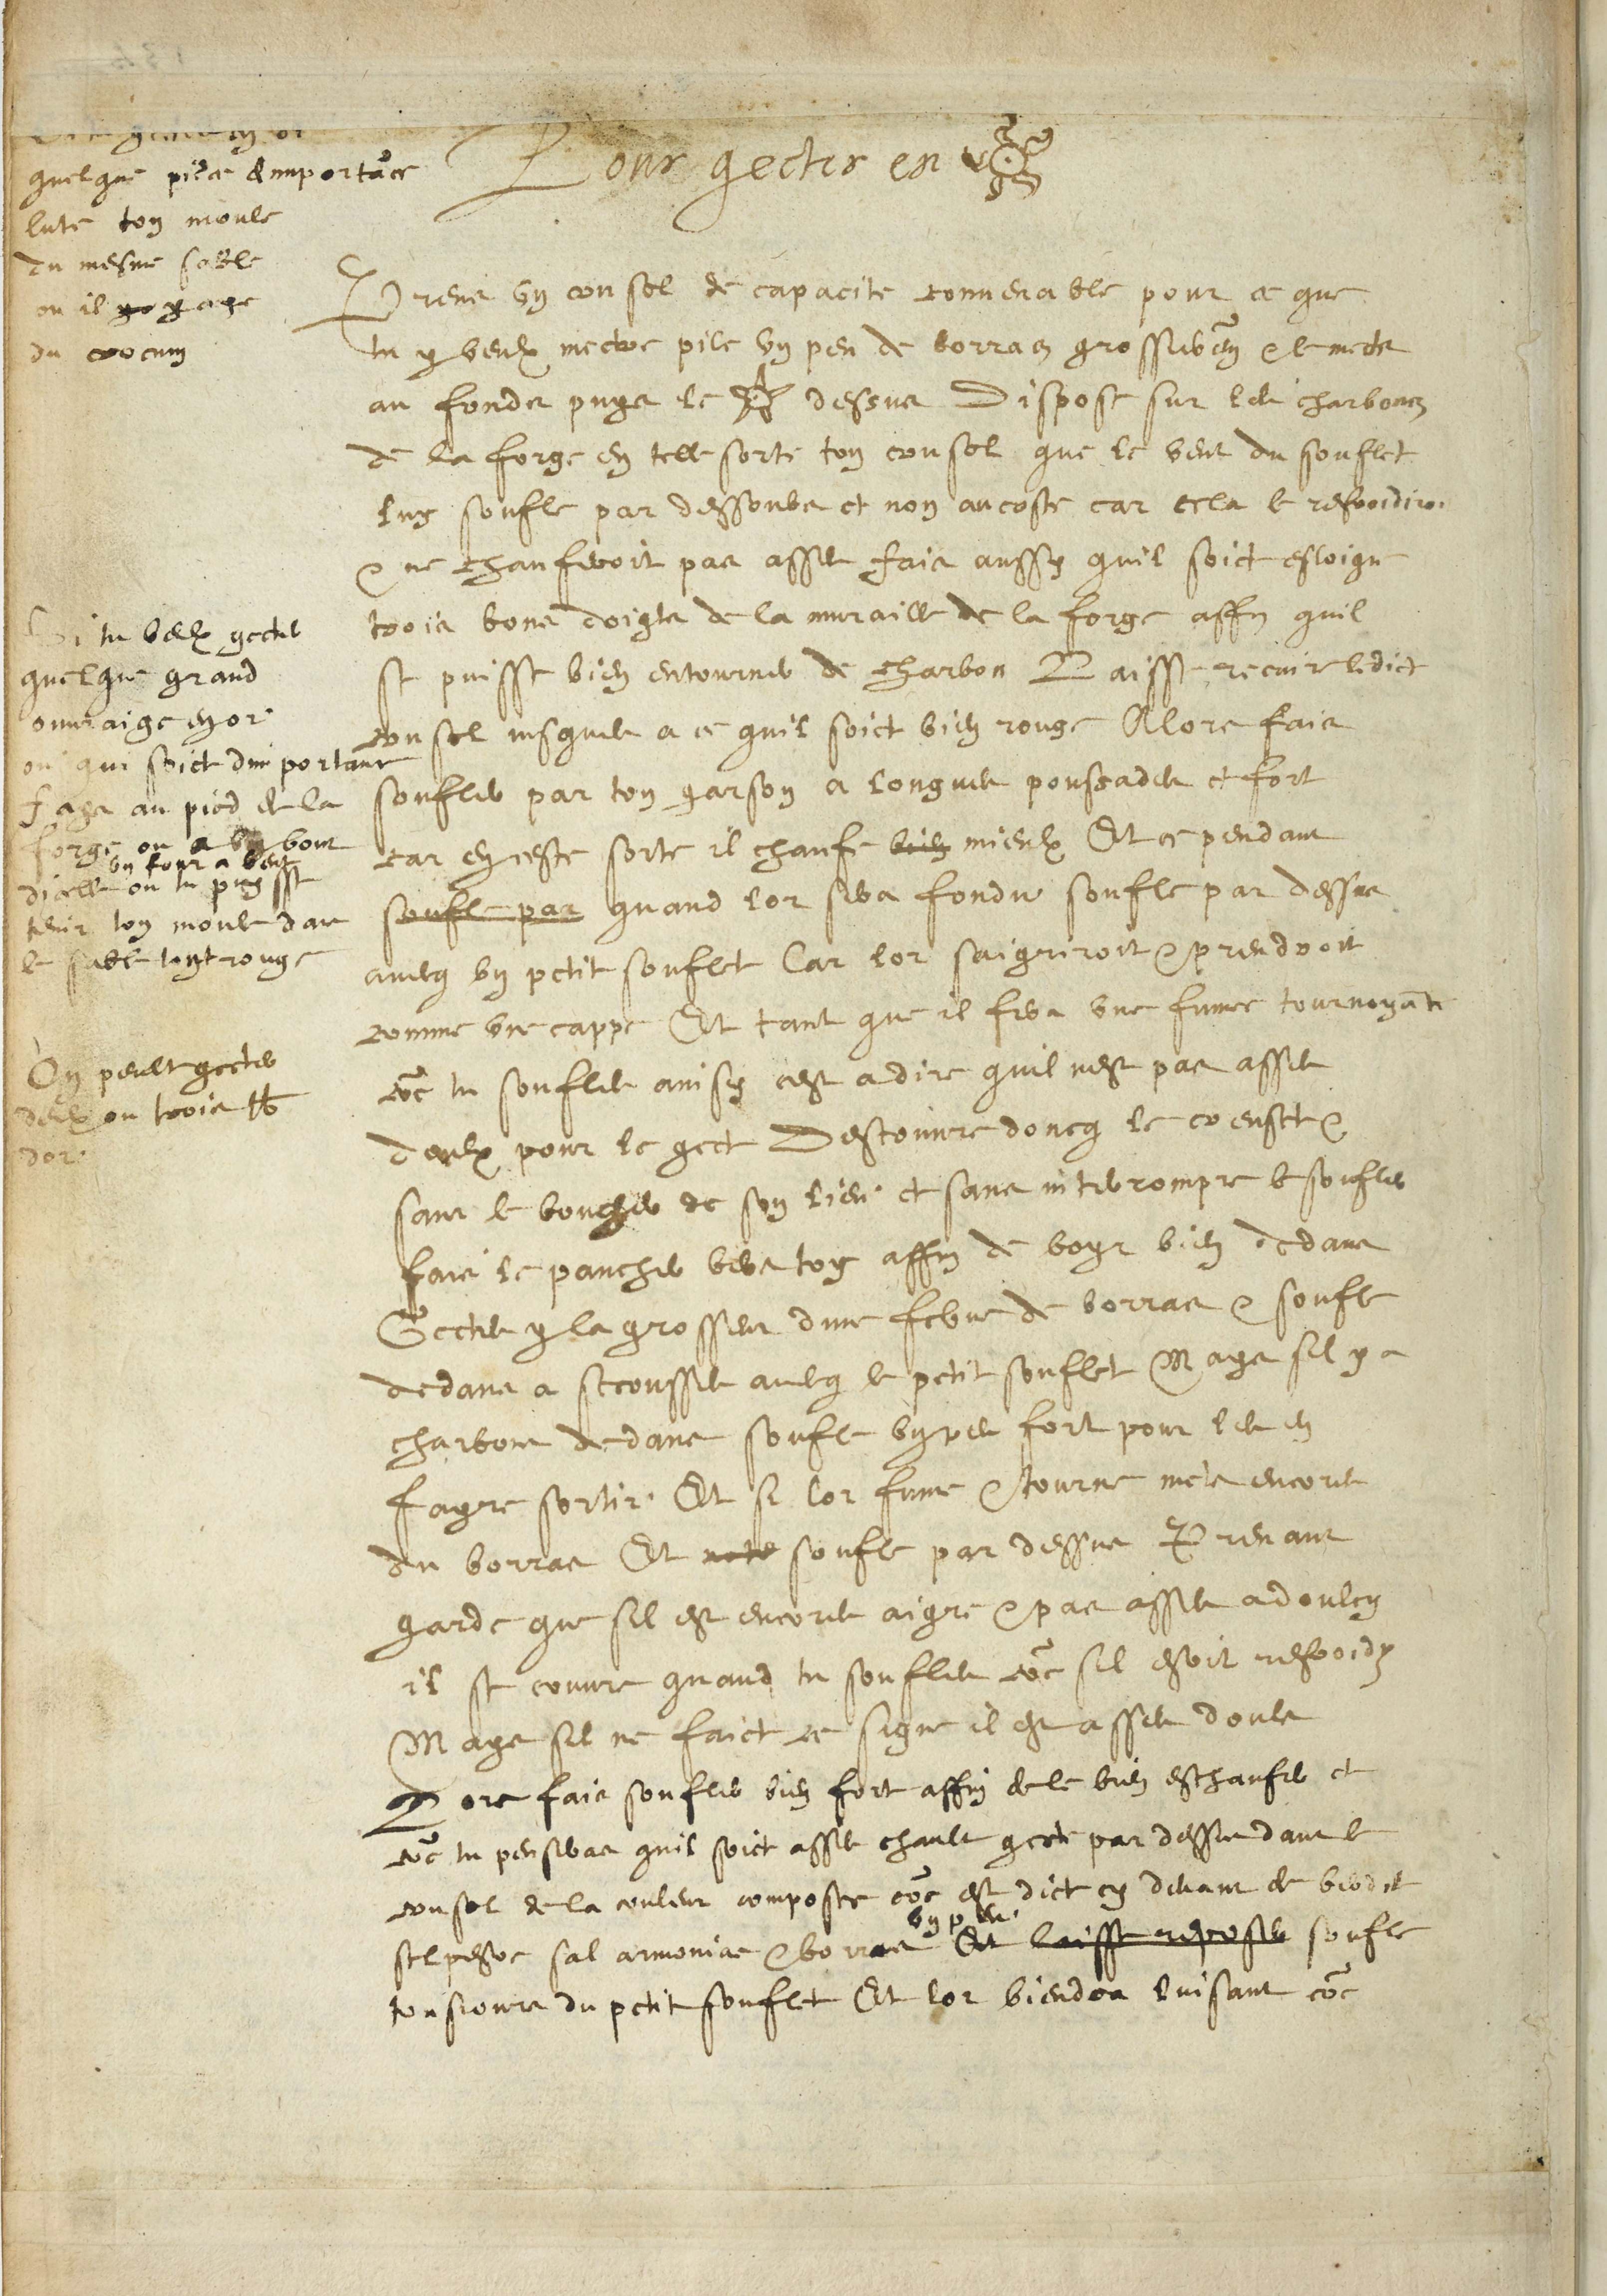 Pour gecter en ☼
quelque piece dimportãce
lute ton moule
du mesme sable
ou il y aye
du crocum
Prens un cruset de capacite convenable pour ce que
tu y veulx mectre pile un peu de borras grossierem̃ & le mects
au fonds puys le ☼ dessus Dispose sur les charbons
de la forge en telle sorte ton cruset que le vent du souflet
luy soufle par dessoubs et non au coste car cela le refroidiroi
& ne chauferoit pas asses fais aussy quil soict esloigne
trois bons doigts de la muraille de la forge affin quil
se puisse bien entourner de charbon Laisse recuire ledict
cruset jusques a ce quil soict bien rouge Alors fais
soufler par ton garson a longues poussades et fort
car en ceste sorte il chaufe bien mieulx Et ce pendant
soufle par quand lor sera fondu soufle par dessus
avecq un petit souflet Car lor saigriroit & prendroit
comme une cappe Et tant que il fera une fumee tournoyãte
cõe tu soufles ainsy cest a dire quil nest pas asses
doulx pour le gect Descouvre doncq le creuset &
sans le bouger de son lieu et sans interrompre le soufler
fais le pancher vers toy affin de voyr bien dedans
Gectes y la grosseur dune febve de borras & soufle
dedans a secousses avecq le petit souflet Mays sil y a
charbons dedans soufle un peu fort pour les en
fayre sortir Et si lor fume & tourne mets encores
du borras Et soufle par dessus Prenant
garde que sil est encores aigre & pas asses adoulcy
il se couvre quand tu soufles cõe sil estoit refroidy
Mays sil ne faict ce signe il est asses doulx
Lors fais soufler bien fort affin de le bien eschaufer et
cõe tu penseras quil soict asses chault gecte par dessus dans le
cruset de la couleur composee cõe est dict cy devant de verdet
selpestre sal armoniac & borras un peu Et laisse reposer soufle
tousjours du petit souflet Et lor viendra luisant cõe
Si tu veulx gecter
quelque grand
ouvraige en or
ou qui soict dimportance
fays au pied de la
forge ou a un bout
un four a vent
dicelle ou tu puysse
tenir ton moule dans
le sable tout rouge
On peult gecter
deulx ou trois ℔
dor